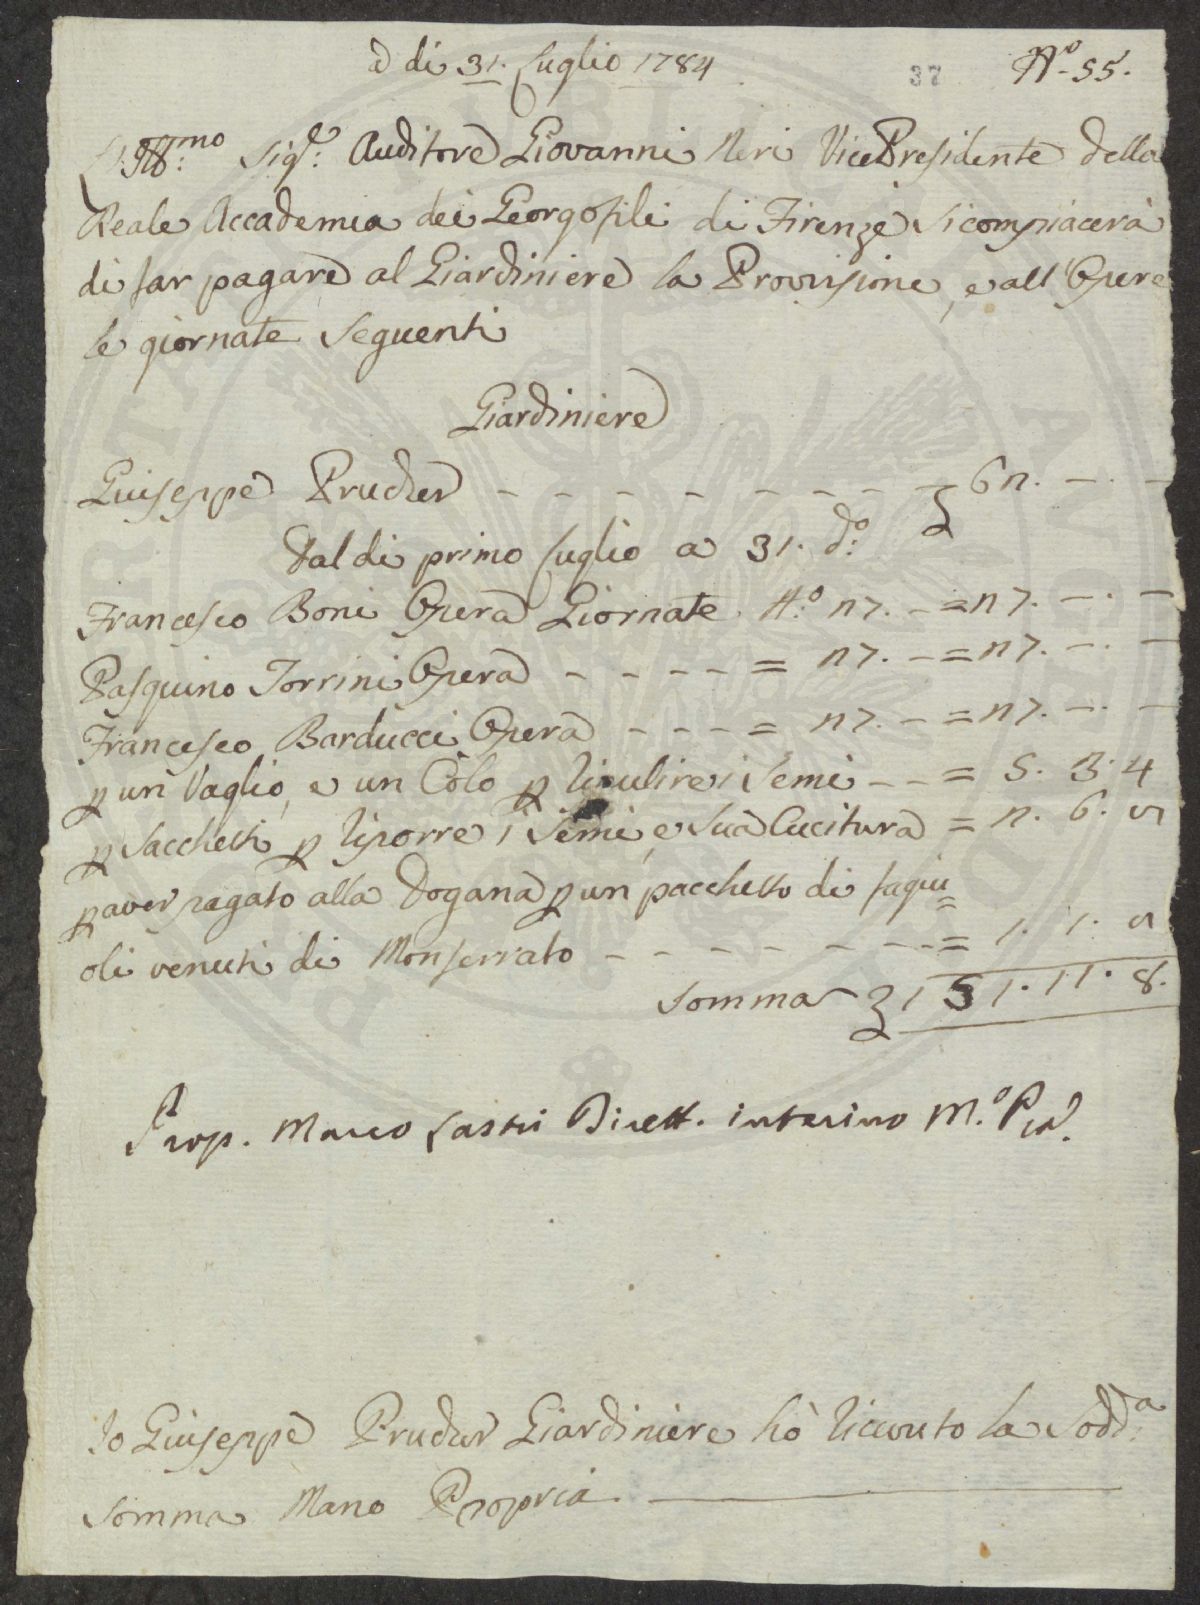 a di 31. Luglio 1784
37 N.° 55.
L'Ill:mo Sig.r: Auditore Giovanni Neri VicePresidente della
Reale Accademia dei Georgofili di Firenze si compiacerà
di far pagare al Giardiniere la Provvisione, e all'Opere
le giornate seguenti
Giardiniere
Giuseppe Prucher - - - - - - - - £ 62. -. -
Dal di primo Luglio a 31. d:°
Francesco Boni Opera Giornate N:° 27. - = 27. -. -
Pasquino Torrini Opera - - - - = 27. - = 27. -. -
Francesco Barducci Opera - - - = 27. - = 27. -. -
p un Vaglio, e un Colo p ripulire i Semi - - = 5. 3. 4
p Sacchetti p riporre i Semi, e sua Cucitura = 2. 6. 8
p aver pagato alla Dogana p un pacchetto di fagiu=
oli venuti di Monferrato - - - - - - - = 1. 1. 8
Somma £ 151. 11. 8.
Prop. Marco Lastri Dirett. interino M.° P.ia
Io Giuseppe Prucher Giardiniere hò ricevuto la Sodd:a
Somma Mano Propria.